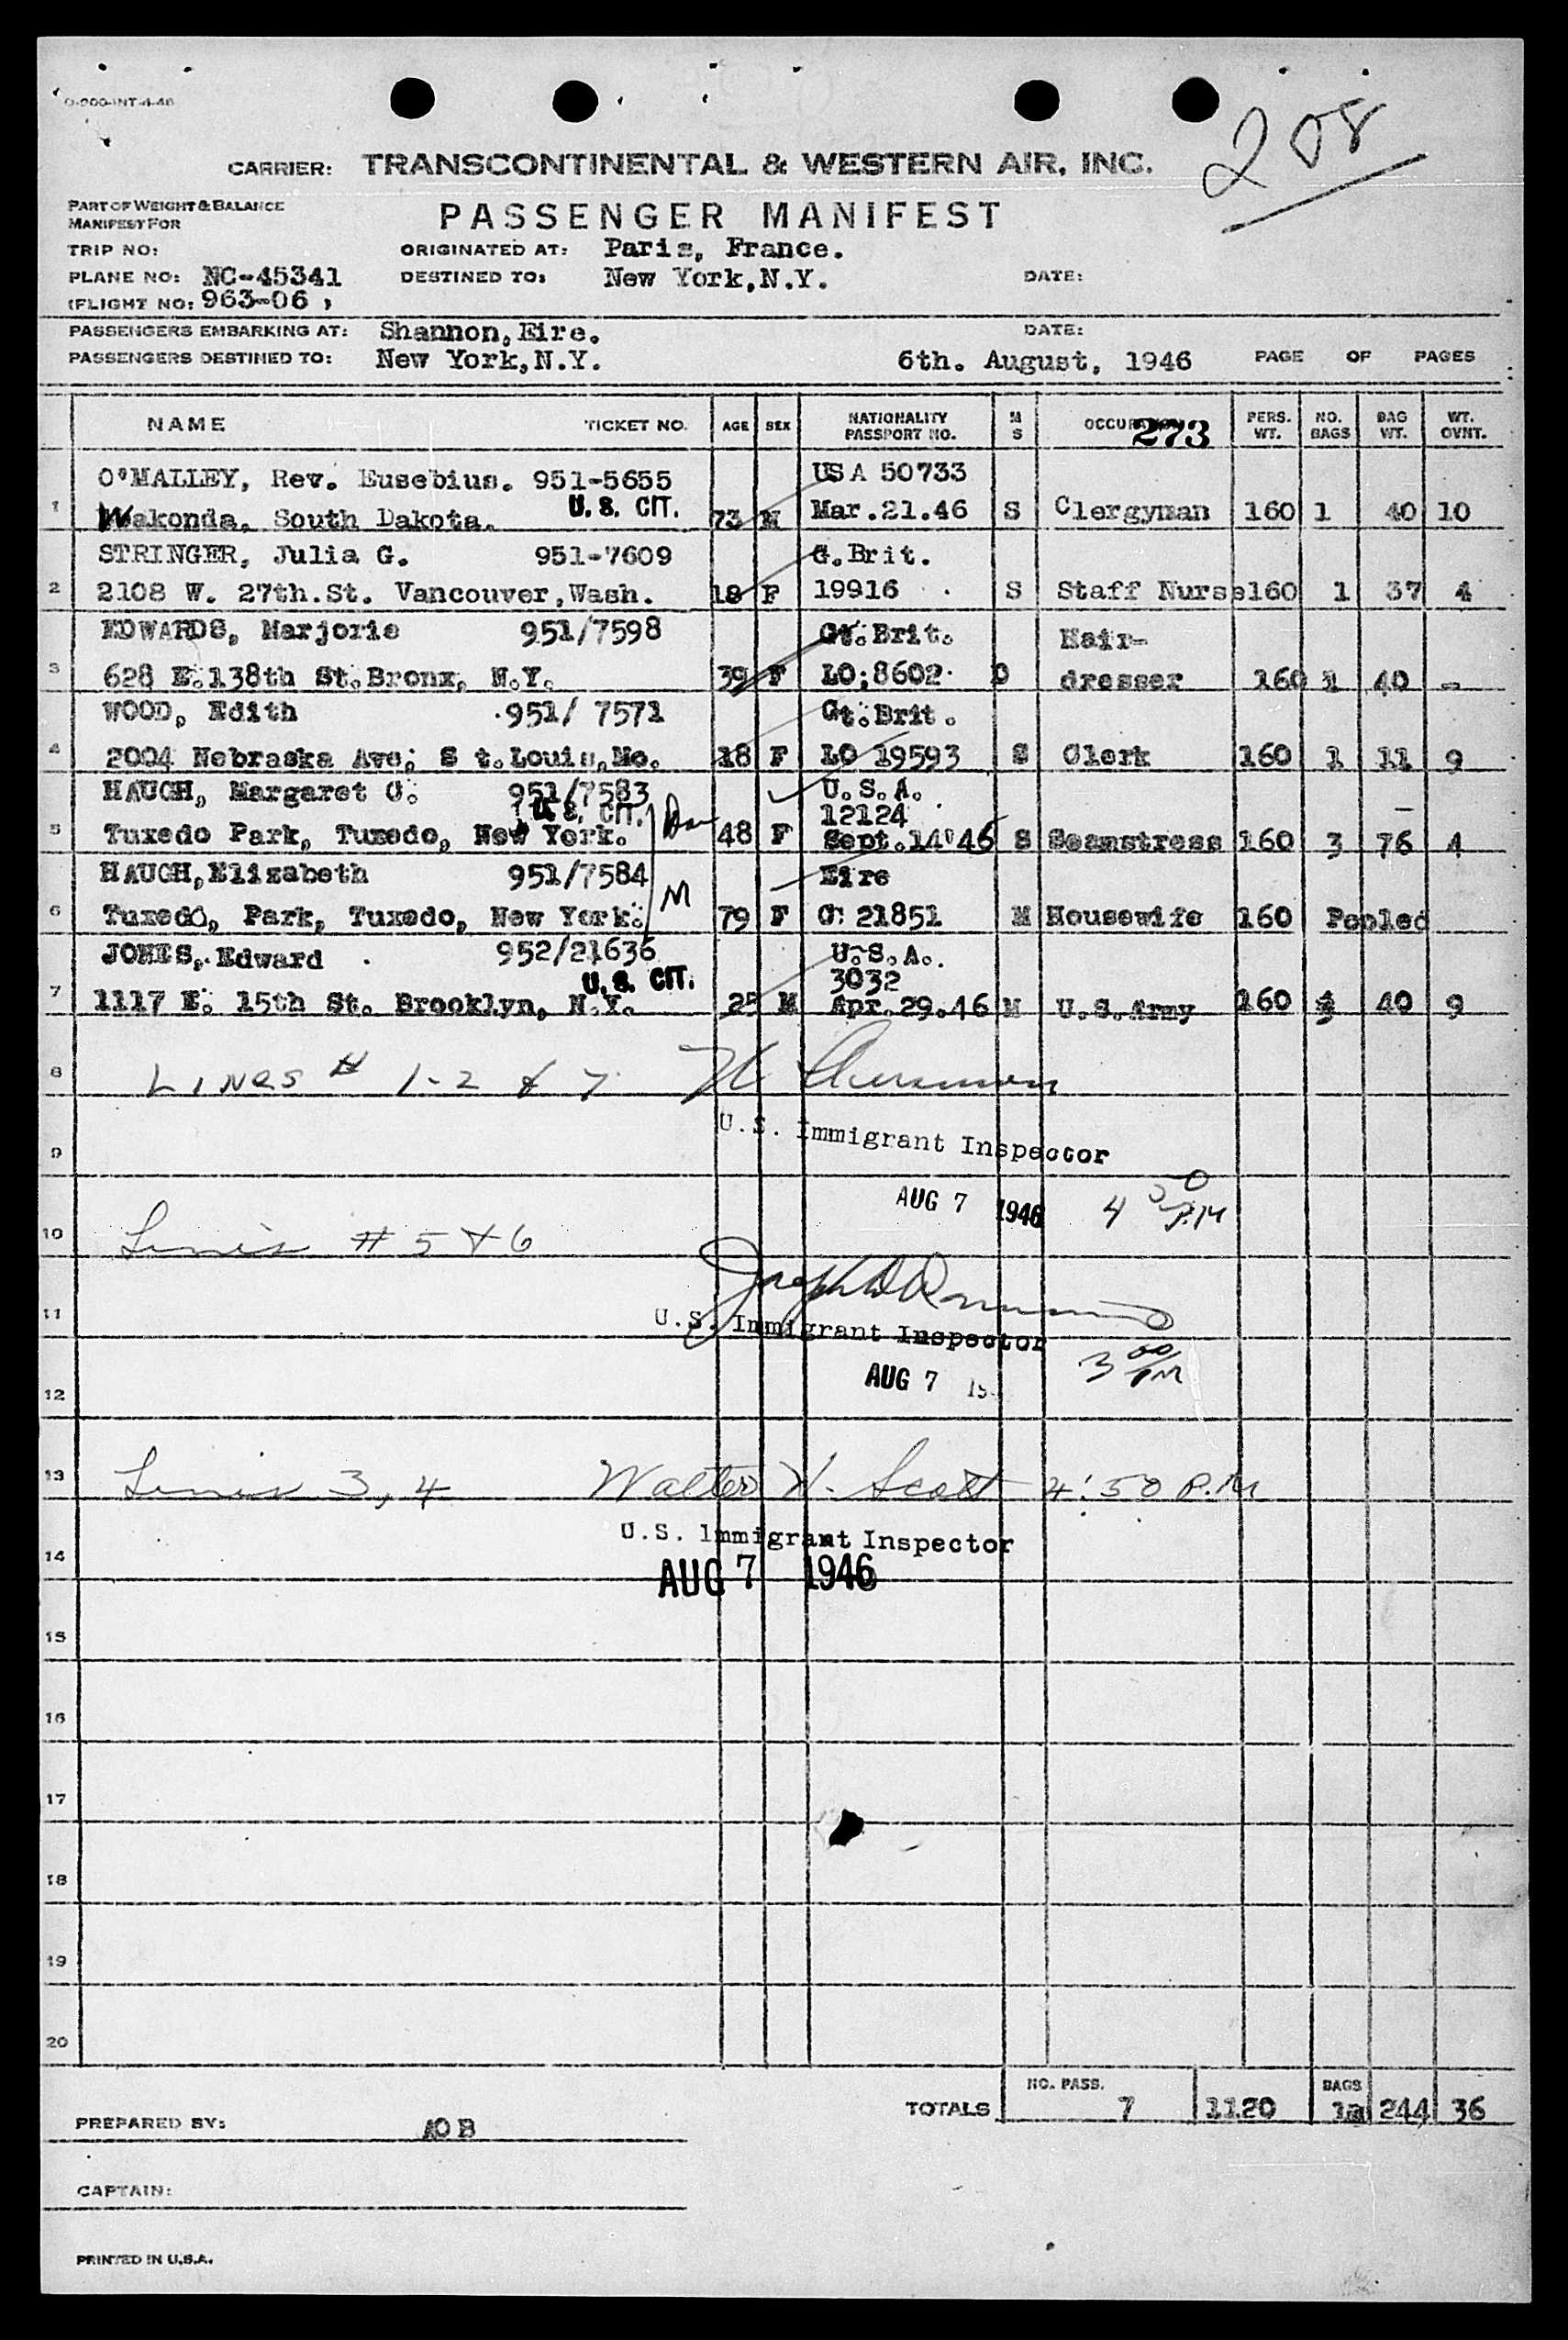 O-200-INT-4-46
208
CARRIER: TRANSCONTINENTAL & WESTERN AIR, INC.
PART OF WEIGHT & BALANCE
MANIFEST FOR
PASSENGER MANIFEST
TRIP NO: ORIGINATED AT: Paris, France.
PLANE NO: NC-45341 DESTINED TO: New York,N.Y. DATE:
(FLIGHT NO: 963-06 ,
PASSENGERS EMBARKING AT: Shannon,Eire. DATE:
PASSENGERS DESTINED TO: New York,N.Y. 6th. August, 1946 PAGE OF PAGES
NAME TICKET NO. AGE SEX NATIONALITY PASSPORT NO. M S OCCUPATION 273 PERS. WT. NO. BAGS BAG WT. WT. OVNT.
O'MALLEY, Rev. Eusebius. 951-5655 USA 50733
1 Wakonda, South Dakota. U.S. CIT. 73 M Mar.21.46 S Clergyman 160 1 40 10
STRINGER, Julia G. 951-7609 G.Brit.
2 2108 W. 27th.St. Vancouver,Wash. 18 F 19916 S Staff Nurse 160 1 37 4
EDWARDS, Marjorie 951/7598 Gt.Brit. Hair-
3 628 E.138th St.Bronx, N.Y. 39 F LO:8602 D dresser 160 1 40 -
WOOD, Edith 951/ 7571 Gt.Brit.
4 2004 Nebraska Ave; S t.Louis,Mo. 18 F LO 19593 S Clerk 160 1 11 9
HAUGH, Margaret C. 951/7583 U.S.A.
U.S. CIT. 12124
5 Tuxedo Park, Tuxedo, New York. 48 F Sept.14'46 S Seamstress 160 3 76 4
HAUGH,Elizabeth 951/7584 Eire
M
6 Tuxedo, Park, Tuxedo, New York. 79 F C: 21851 M Housewife 160 Pooled
JONES, Edward 952/21636 U.S.A.
U.S. CIT. 3032
7 1117 E. 15th St. Brooklyn, N.Y. 25 M Apr.29.46 M U.S.Army 160 40 9
8 Lines # 1-2 & 7
U.S. Immigrant Inspector
9
AUG 7 1946 4 50 P.M
10 Lines # 5 & 6
11 U.S. Immigrant Inspector
3 00 PM
AUG 7
12
13 Lines 3, 4 Walter H. Scott 4:50 P.M
U.S. Immigrant Inspector
14 AUG 7 1946
15
16
17
18
19
20
NO. PASS. BAGS
TOTALS 7 1120 244 36
PREPARED BY: AOB
CAPTAIN:
PRINTED IN U.S.A.